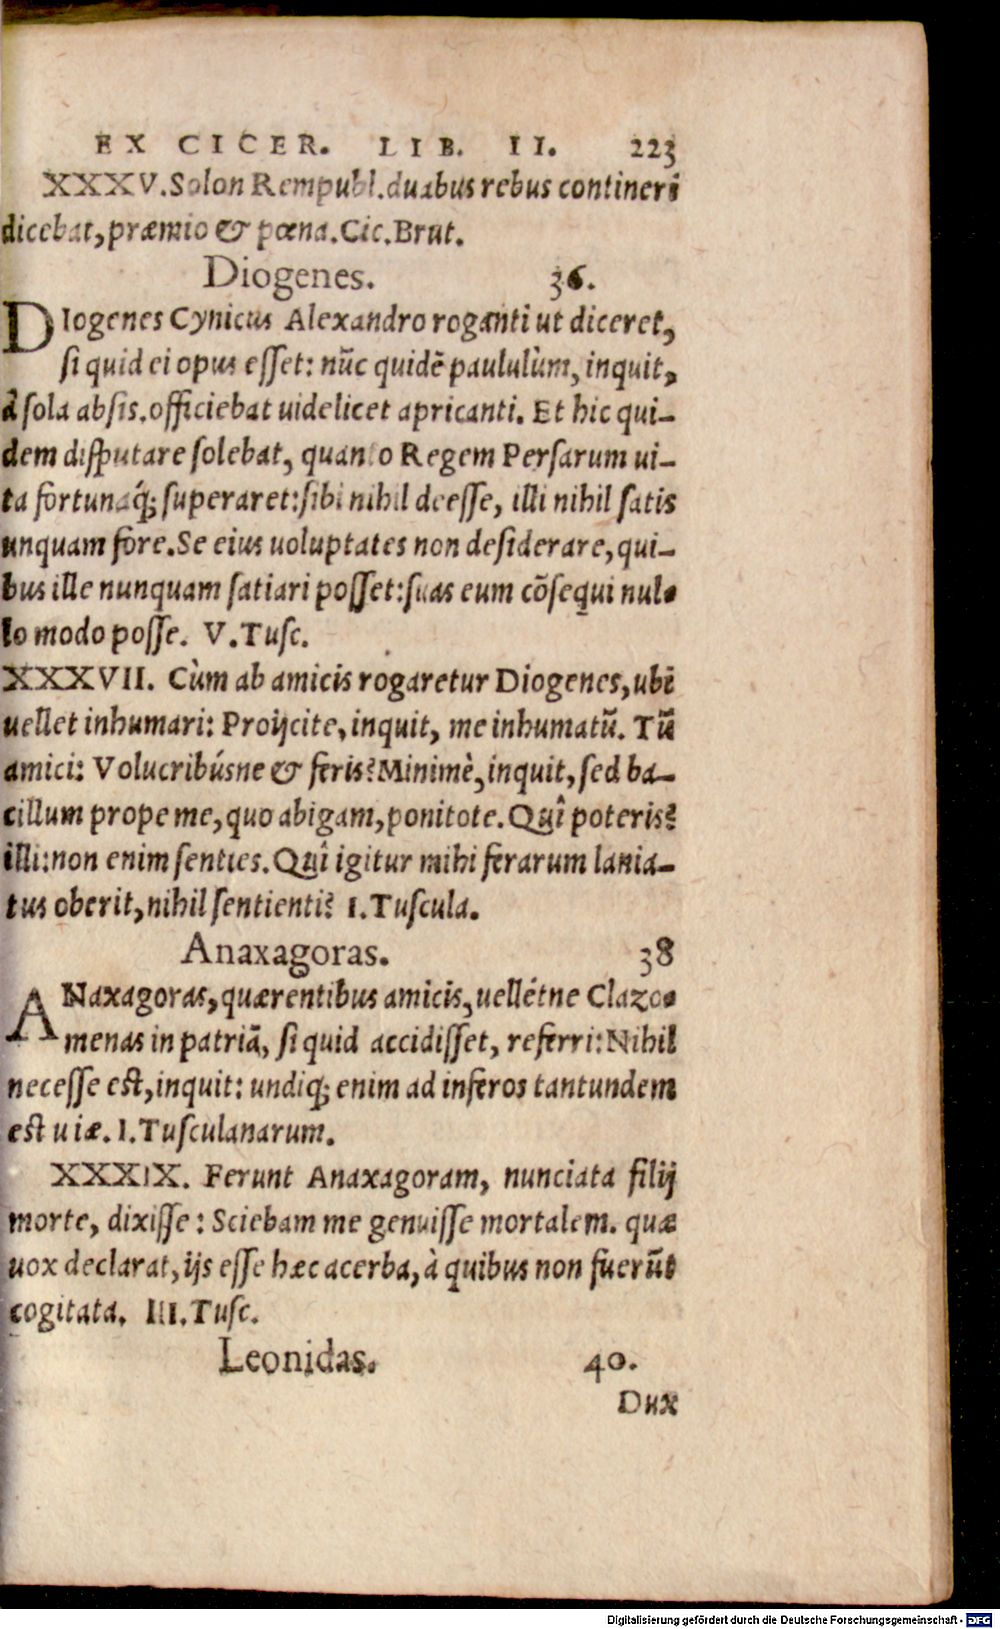 EX CICER. LIB. II. 223
XXXV. Solon Rempubl. duabus rebus contineri
dicebat, præmio & pœna. Cic. Brut.
Diogenes. 36.
DIogenes Cynicus Alexandro roganti ut diceret,
si quid ei opus esset: nūc quidē paululùm, inquit,
à sola absis. officiebat uidelicet apricanti. Et hic qui-
dem disputare solebat, quanto Regem Persarum ui-
ta fortunaq́; superaret: sibi nihil deesse, illi nihil satis
unquam fore. Se eius uoluptates non desiderare, qui-
bus ille nunquam satiari posset: suas eum cōsequi nul-
lo modo posse. V. Tusc.
XXXVII. Cùm ab amicis rogaretur Diogenes, ubi
uellet inhumari: Proijcite, inquit, me inhumatū. Tū
amici: Volucribúsne & feris? Minimè, inquit, sed ba-
cillum prope me, quo abigam, ponitote. Quî poteris?
illi: non enim senties. Quî igitur mihi ferarum lania-
tus oberit, nihil sentienti? I. Tuscula.
Anaxagoras. 38
ANaxagoras, quærentibus amicis, uellétne Clazo-
menas in patriā, si quid accidisset, referri: Nihil
necesse est, inquit: undiq; enim ad inferos tantundem
est uiæ. I. Tusculanarum.
XXXIX. Ferunt Anaxagoram, nunciata filij
morte, dixisse: Sciebam me genuisse mortalem. quæ
uox declarat, ijs esse hæc acerba, à quibus non fuerūt
cogitata. III. Tusc.
Leonidas. 40.
Dux
Digitalisierung gefördert durch die Deutsche Forschungsgemeinschaft - DFG